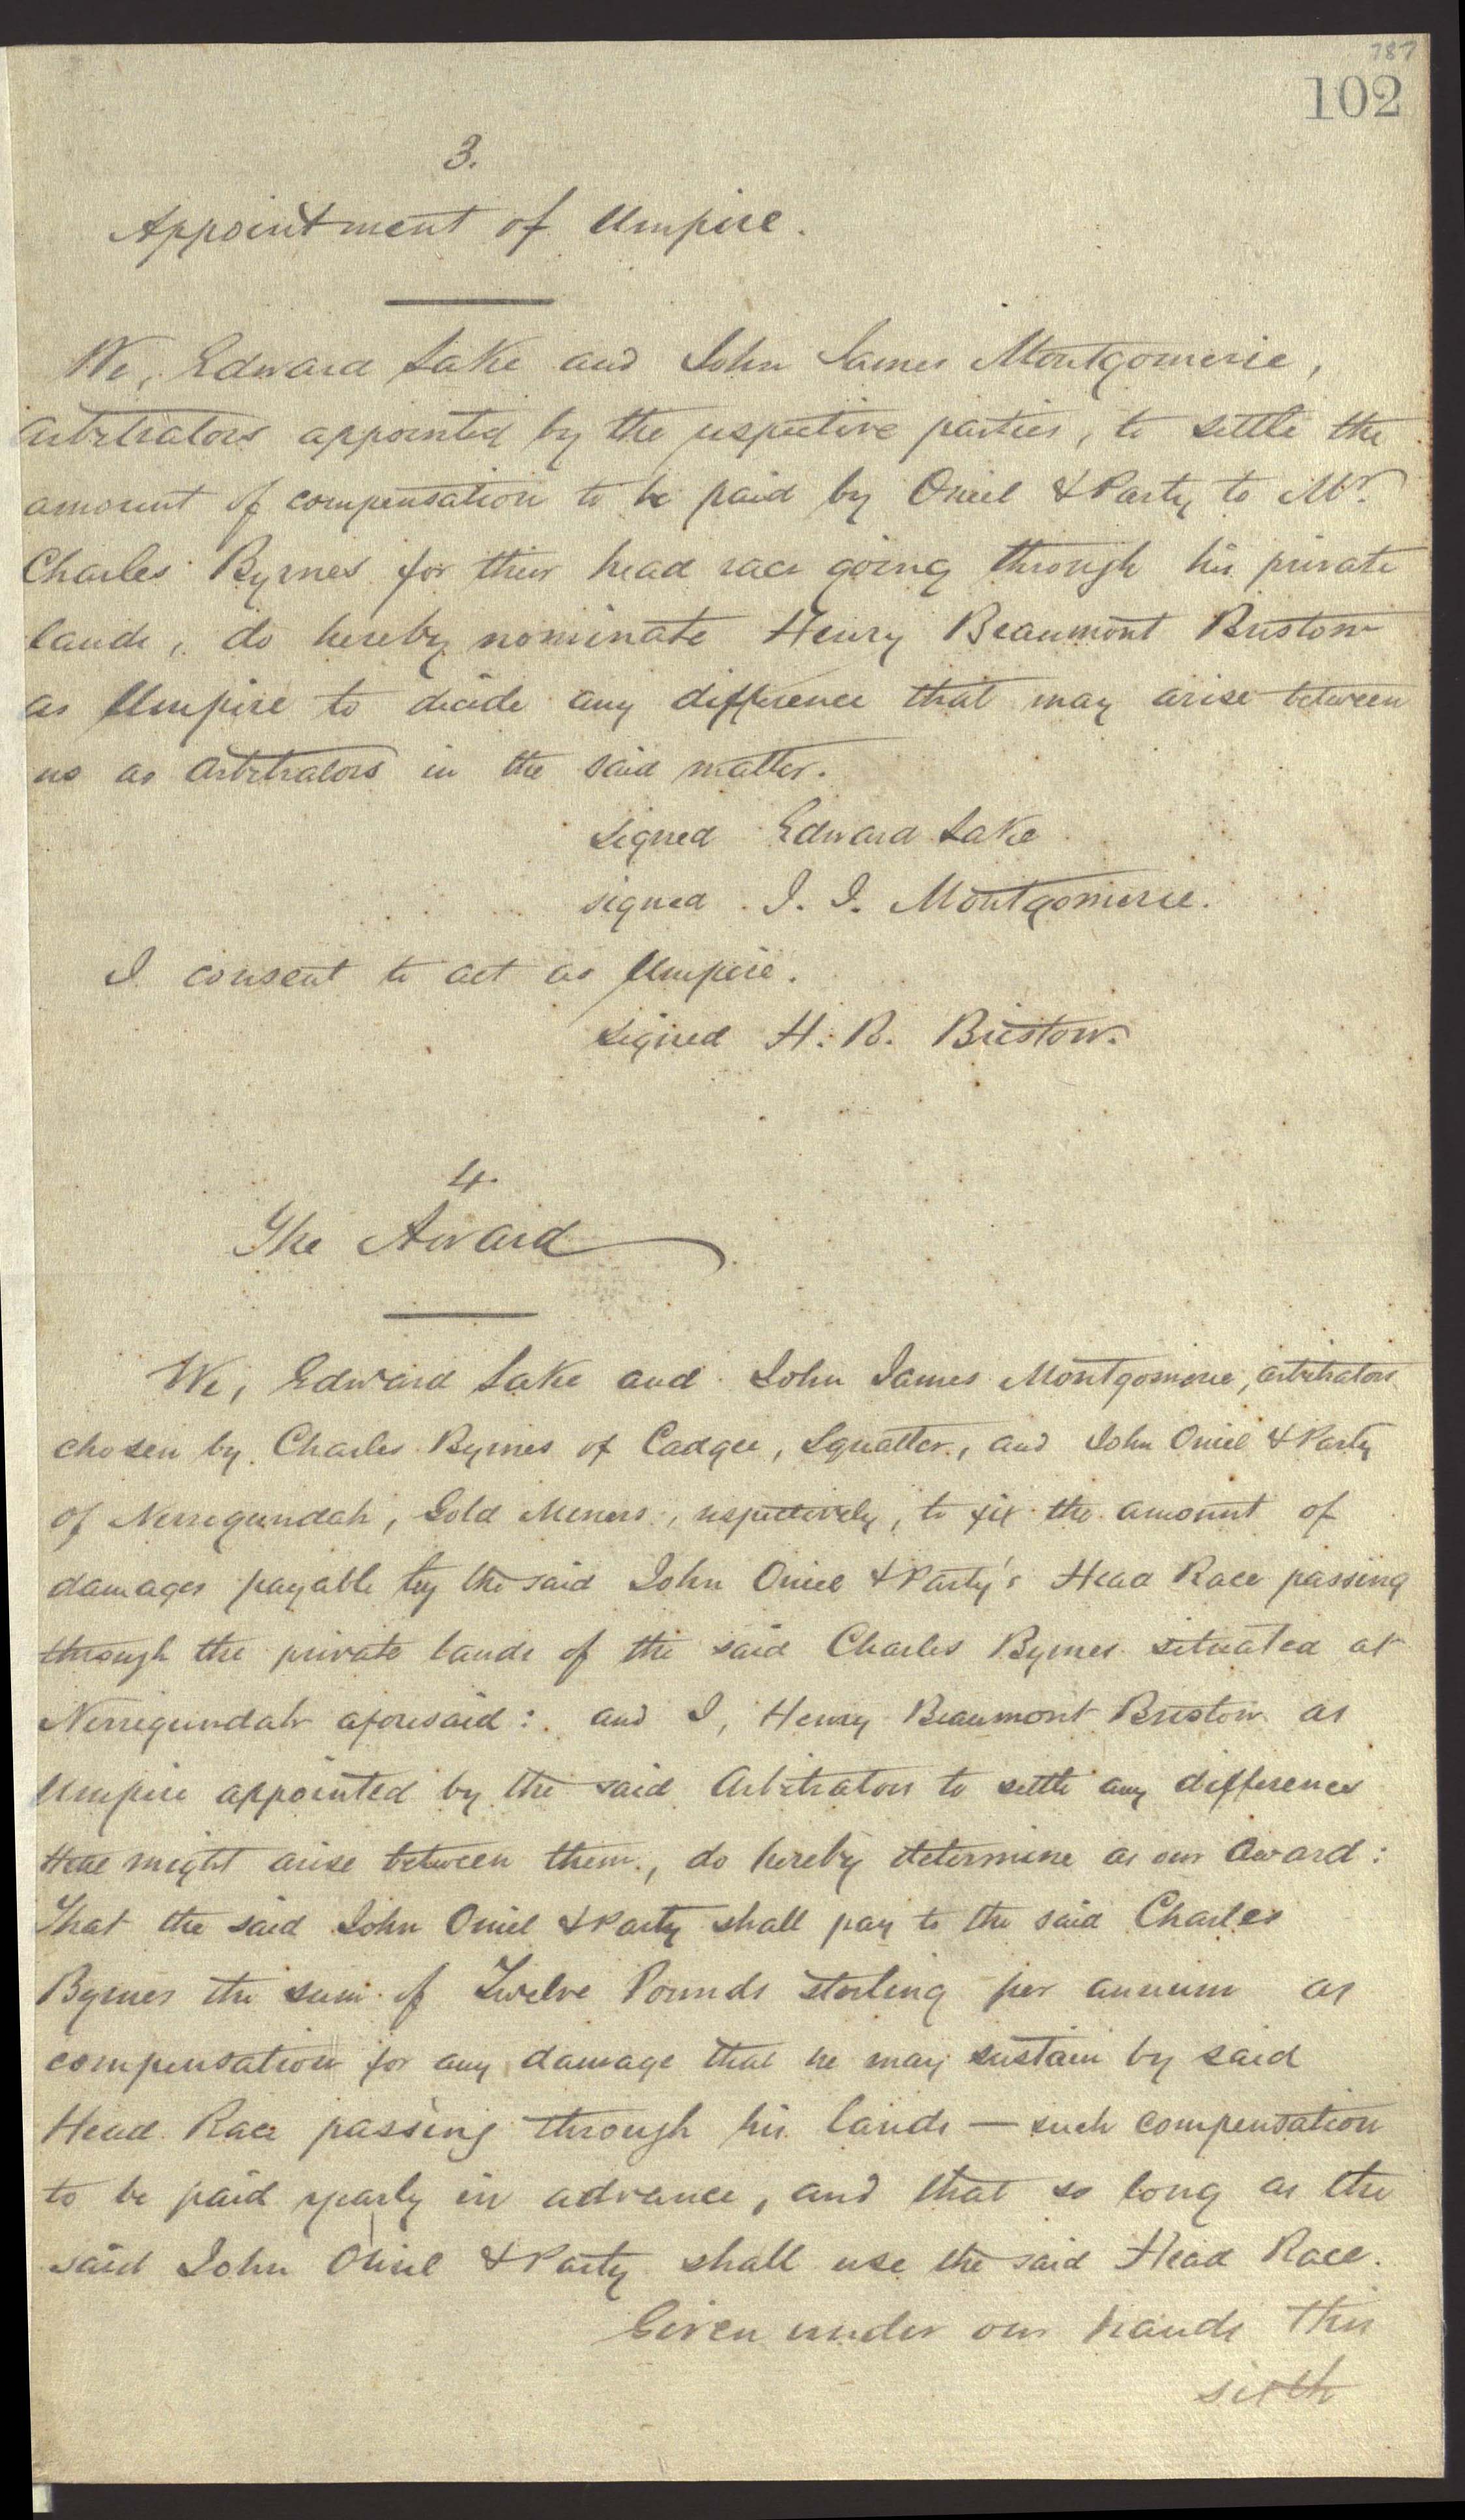 787
102
3.
Appointment of Umpire.
We, Edward Lake and John James Montgomerie,
arbitrators appointed by the respective parties, to settle the
amount of compensation to be paid by Oniel & Party to Mr.
Charles Byrnes for their head race going through his private
lands, do hereby nominate Henry Beaumont Bristow
as Umpire to decide any difference that may arise between
us as arbitrators in the said matter.
signed Edward Lake
signed J. J. Montgomerie.
I consent to act as Umpire.
signed H. B. Bristow.
4.
The Award
We, Edward Lake and John James Montgomerie, arbitrators
chosen by Charles Byrnes of Cadgee, Squatter, and John Oniel & Party
of Nerrigundah, Gold Miners, respectively, to fix the amount of
damages payable by the said John Oniel & Party's Head Race passing
through the private lands of the said Charles Byrnes situated at
Nerrigundah aforesaid: and I, Henry Beaumont Bristow as
Umpire appointed by the said Arbitrators to settle any differences
there might arise between them, do hereby determine as our Award:
That the said John Oniel & Party shall pay to the said Charles
Byrnes the sum of Twelve Pounds sterling per annum as
compensation for any damage that he may sustain by said
Head Race passing through his lands — such compensation
to be paid yearly in advance, and that so long as the
said John Oniel & Party shall use the said Head Race.
Given under our hands this
sixth